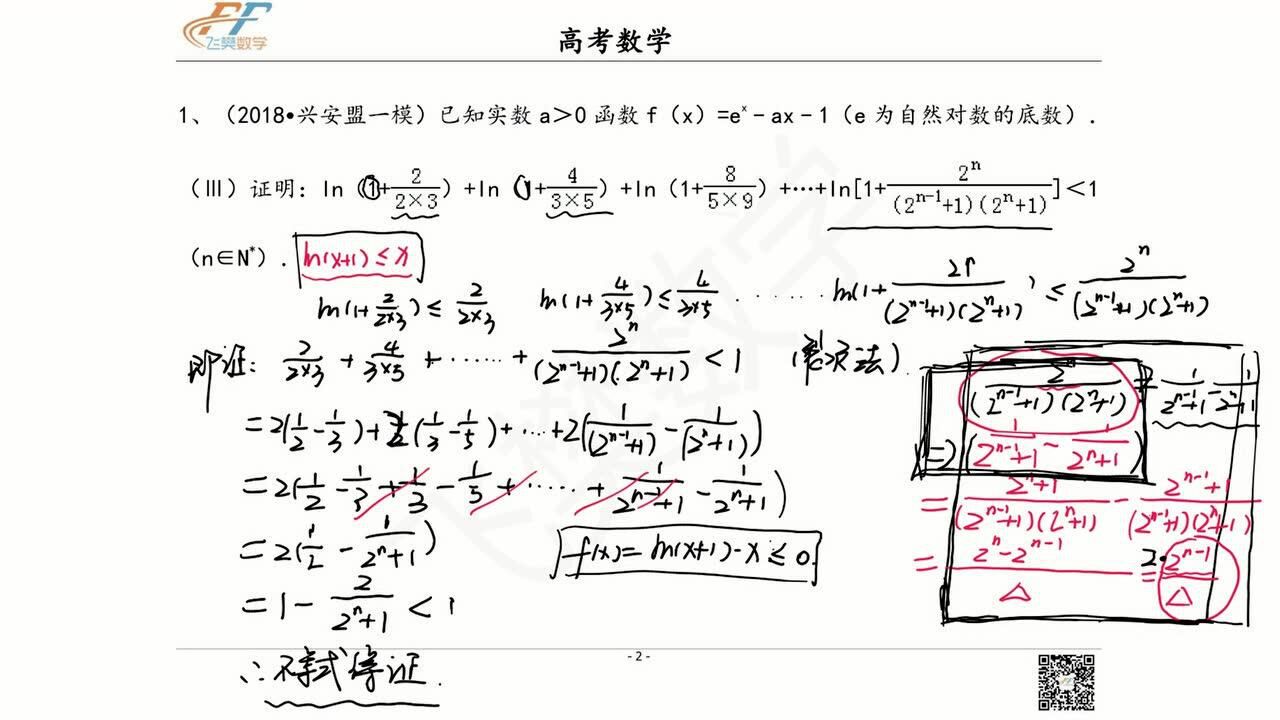 飞樊数学
高考数学
1、(2018•兴安盟一模)已知实数 a>0 函数 f(x)=e^x-ax-1(e 为自然对数的底数).
(Ⅲ)证明:ln(1+2/(2×3))+ln(1+4/(3×5))+ln(1+8/(5×9))+…+ln[1+2^n/((2^(n-1)+1)(2^n+1))]<1
(n∈N*). ln(x+1)≤x
ln(1+2/(2×3))≤2/(2×3) ln(1+4/(3×5))≤4/(3×5) ······ ln(1+2^n/((2^(n-1)+1)(2^n+1)))≤2^n/((2^(n-1)+1)(2^n+1))
即证: 2/(2×3)+4/(3×5)+······+2^n/((2^(n-1)+1)(2^n+1))<1
=2(1/2-1/3)+2(1/3-1/5)+···+2(1/(2^(n-1)+1)-1/(2^n+1))
=2(1/2-1/3+1/3-1/5+·····+1/(2^(n-1)+1)-1/(2^n+1))
=2(1/2-1/(2^n+1))
=1-2/(2^n+1)<1
∴不等式得证.
f(x)=ln(x+1)-x≤0.
2^n/((2^(n-1)+1)(2^n+1)) = 1/(2^(n-1)+1)-1/(2^n+1)
=2(1/(2^(n-1)+1)-1/(2^n+1))
=(2^n+1)/((2^(n-1)+1)(2^n+1))-(2^(n-1)+1)/((2^(n-1)+1)(2^n+1))
=(2^n-2^(n-1))/△=2·2^(n-1)/△
-2-